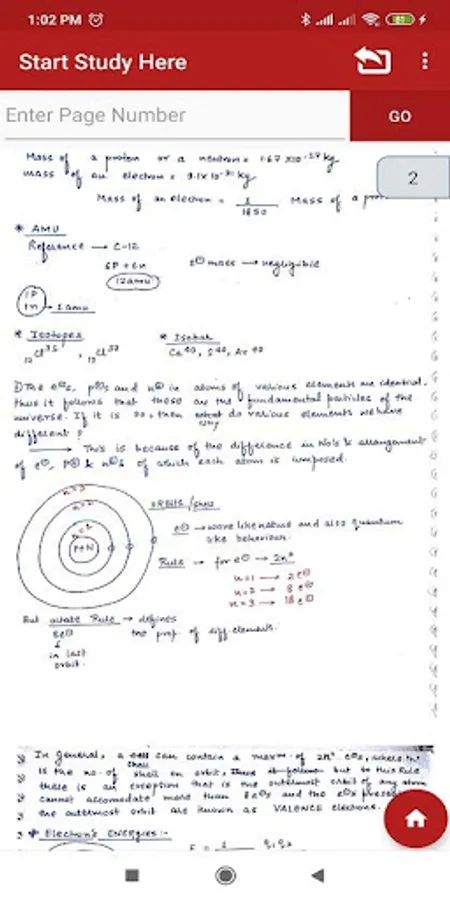 1:02 PM
Start Study Here
Enter Page Number
GO
2
Mass of a proton or a neutron = 1.67 x 10⁻²⁷ kg
mass of an electron = 9.1 x 10⁻³¹ kg
Mass of an electron = 1/1850 Mass of a
* AMU
Reference → C-12
6P + 6n e⊖ mass → negligible
12amu
1P
1n → 1amu
* Isotopes * Isobar
₁₇Cl³⁵, ₁₇Cl³⁷ Ca⁴⁰, S⁴⁰, Ar⁴⁰
The e⊖s, p⊕s and n in atoms of various elements are identical.
thus it follows that these are the fundamental particles of the
universe. If it is so, then what do various elements we have
why
different ?
→ This is because of the difference in No's & arrangement
of e⊖, p⊕ & n s of which each atom is composed.
n=3
n=2
P+N
ORBITS/shell
e⊖ → wave like nature and also quantum
like behaviour.
Rule → for e⊖ → 2n²
n=1 → 2e⊖
n=2 → 8e⊖
n=3 → 18e⊖
But octate Rule → defines
8e⊖ the prop. of diff. elements.
in last
orbit.
In General, a can contain a maxm. of 2n² e⊖s, where 'n'
shell
is the no. of shell or orbit, but to this Rule
there is an exception that is the outermost orbit of any atom
cannot accomodate more than 8e⊖s and the e⊖s
the outermost orbit are known as VALENCE electrons.
* Electron's ENERGIES :-